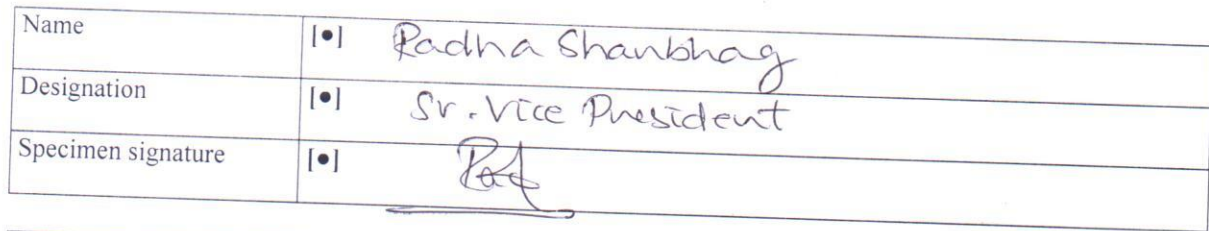 Name [•] Radha Shanbhag
Designation [•] Sr. Vice President
Specimen signature [•]